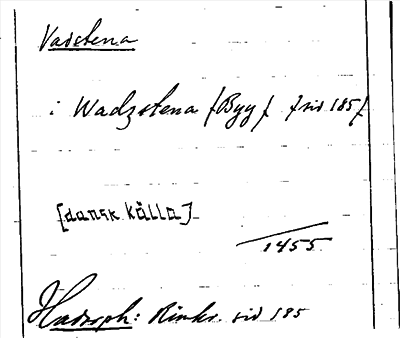 Vadstena
i Wadzstena [Byy] [sid 185]
[dansk källa]
1455
Hadorph: Rimkr. sid 185